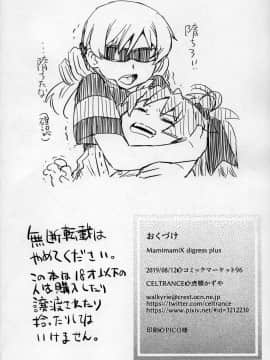 堕ちろ…!!
堕ちたな
(確認)
無断転載は
やめてください。
この本は18才以下の
人は購入したり
譲渡されたり
拾ったりしては
いけません。
おくづけ
MamimamiX digress plus
2019/08/12◎コミックマーケット96
CELTRANCE◎虎猫かずや
walkyrie@crest.ocn.ne.jp
https://twitter.com/celtrance
https://www.pixiv.net/#id=3212230
印刷◎PICO様